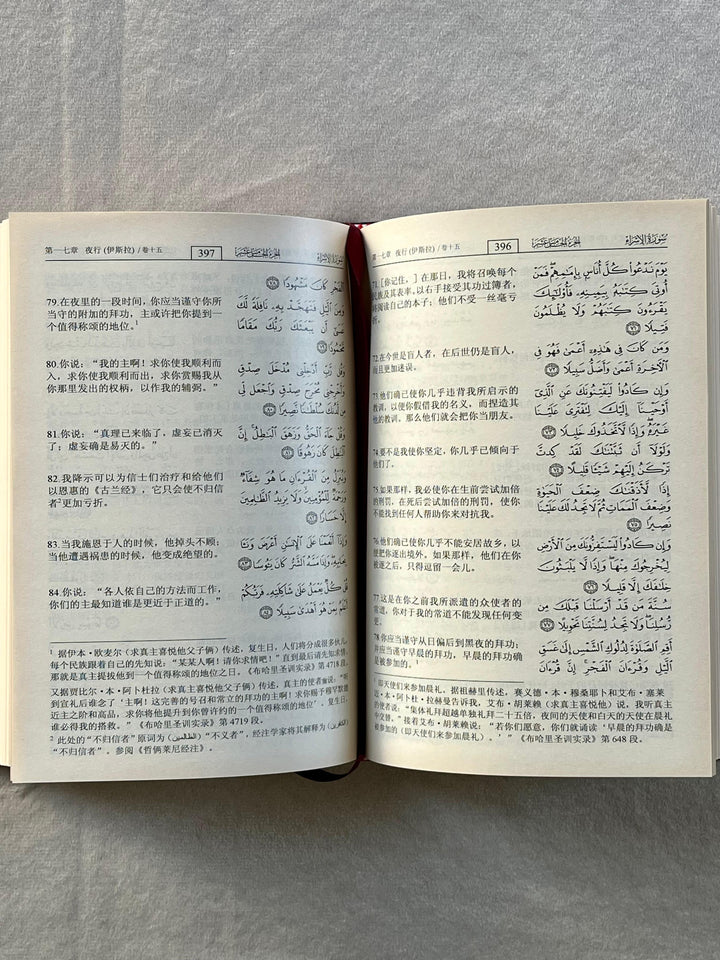 第一七章 夜行(伊斯拉)/卷十五
396
الجزء الخامس عشر
سورة الإسراء
71.[你记住，] 在那日，我将召唤每个
民族及其表率,以右手接受其功过簿者，
将阅读自己的本子；他们不受一丝毫亏
折。
72.在今世是盲人者，在后世仍是盲人，
而且更加迷误。
73.他们确已使你几乎违背我所启示的
教训，以便你假借我的名义，而捏造其
他的教训。那么他们就会把你当朋友。
74.要不是我使你坚定，你几乎已倾向于
他们了。
75.如果那样，我必使你在生前尝试加倍
的刑罚，在死后尝试加倍的刑罚，然后，你
不能找到任何人帮助你来对抗我。
76.他们确已使你几乎不能安居故乡，以
便把你逐出境外。如果那样，他们在你
被逐之后，只得逗留一会儿。
77.这是在你之前我所派遣的众使者的
常道，你对于我的常道不能发现任何变
更。
78.你应当谨守从日偏后到黑夜的拜功；
并应当谨守早晨的拜功，早晨的拜功确
是被参加的。¹
يَوْمَ نَدْعُوا كُلَّ أُنَاسٍ بِإِمَامِهِمْ ۖ فَمَنْ
أُوتِيَ كِتَابَهُ بِيَمِينِهِ فَأُولَٰئِكَ
يَقْرَءُونَ كِتَابَهُمْ وَلَا يُظْلَمُونَ
فَتِيلًا ٧١
وَمَن كَانَ فِي هَٰذِهِ أَعْمَىٰ فَهُوَ فِي
الْآخِرَةِ أَعْمَىٰ وَأَضَلُّ سَبِيلًا ٧٢
وَإِن كَادُوا لَيَفْتِنُونَكَ عَنِ الَّذِي
أَوْحَيْنَا إِلَيْكَ لِتَفْتَرِيَ عَلَيْنَا
غَيْرَهُ ۖ وَإِذًا لَّاتَّخَذُوكَ خَلِيلًا ٧٣
وَلَوْلَا أَن ثَبَّتْنَاكَ لَقَدْ كِدتَّ
تَرْكَنُ إِلَيْهِمْ شَيْئًا قَلِيلًا ٧٤
إِذًا لَّأَذَقْنَاكَ ضِعْفَ الْحَيَاةِ
وَضِعْفَ الْمَمَاتِ ثُمَّ لَا تَجِدُ لَكَ عَلَيْنَا
نَصِيرًا ٧٥
وَإِن كَادُوا لَيَسْتَفِزُّونَكَ مِنَ الْأَرْضِ
لِيُخْرِجُوكَ مِنْهَا ۖ وَإِذًا لَّا يَلْبَثُونَ
خِلَافَكَ إِلَّا قَلِيلًا ٧٦
سُنَّةَ مَن قَدْ أَرْسَلْنَا قَبْلَكَ مِن
رُّسُلِنَا ۖ وَلَا تَجِدُ لِسُنَّتِنَا تَحْوِيلًا ٧٧
أَقِمِ الصَّلَاةَ لِدُلُوكِ الشَّمْسِ إِلَىٰ غَسَقِ
اللَّيْلِ وَقُرْآنَ الْفَجْرِ ۖ إِنَّ قُرْآنَ
¹ 即天使们来参加晨礼。据祖赫里传述，赛义德·本·穆桑耶卜和艾布·塞莱
·本·阿卜杜·拉赫曼告诉我，艾布·胡莱赖（求真主喜悦他）说，我听真主
的使者说：“集体礼拜超越单独礼拜二十五倍，夜间的天使和白天的天使在晨礼
中交替。”接着艾布·胡莱赖说：“若你们愿意，你们就诵读‘早晨的拜功确是
被参加的（即天使们来参加晨礼）。’”《布哈里圣训实录》第 648 段。
第一七章 夜行(伊斯拉)/卷十五
397
الجزء الخامس عشر
سورة الإسراء
79.在夜里的一段时间，你应当谨守你所
当守的附加的拜功，主或许把你提到一
个值得称颂的地位。¹
80.你说：“我的主啊！求你使我顺利而
入，求你使我顺利而出，求你赏赐我从
你那里发出的权柄，以作我的辅弼。”
81.你说：“真理已来临了，虚妄已消灭
了；虚妄确是易灭的。”
82.我降示可以为信士们治疗和给他们
以恩惠的《古兰经》，它只会使不归信
者²更加亏折。
83.当我施恩于人的时候，他掉头不顾；
当他遭遇祸患的时候，他变成绝望的。
84.你说：“各人依自己的方法而工作，
你们的主最知道谁是更近于正道的。”
الْفَجْرِ كَانَ مَشْهُودًا ٧٨
وَمِنَ اللَّيْلِ فَتَهَجَّدْ بِهِ نَافِلَةً لَّكَ
عَسَىٰ أَن يَبْعَثَكَ رَبُّكَ مَقَامًا
مَّحْمُودًا ٧٩
وَقُل رَّبِّ أَدْخِلْنِي مُدْخَلَ صِدْقٍ
وَأَخْرِجْنِي مُخْرَجَ صِدْقٍ وَاجْعَل لِّي
مِن لَّدُنكَ سُلْطَانًا نَّصِيرًا ٨٠
وَقُلْ جَاءَ الْحَقُّ وَزَهَقَ الْبَاطِلُ ۚ إِنَّ
الْبَاطِلَ كَانَ زَهُوقًا ٨١
وَنُنَزِّلُ مِنَ الْقُرْآنِ مَا هُوَ شِفَاءٌ
وَرَحْمَةٌ لِّلْمُؤْمِنِينَ ۙ وَلَا يَزِيدُ الظَّالِمِينَ
إِلَّا خَسَارًا ٨٢
وَإِذَا أَنْعَمْنَا عَلَى الْإِنسَانِ أَعْرَضَ وَنَأَىٰ
بِجَانِبِهِ ۖ وَإِذَا مَسَّهُ الشَّرُّ كَانَ يَئُوسًا ٨٣
قُلْ كُلٌّ يَعْمَلُ عَلَىٰ شَاكِلَتِهِ فَرَبُّكُمْ
أَعْلَمُ بِمَنْ هُوَ أَهْدَىٰ سَبِيلًا ٨٤
¹ 据伊本·欧麦尔（求真主喜悦他父子俩）传述，复生日，人们将分成很多伙儿，
每个民族跟着自己的先知说：“某某人啊！请你求情吧！”直到最后请先知求情，
那就是真主提拔他到一个值得称颂的地位之日。《布哈里圣训实录》第 4718 段。
又据贾比尔·本·阿卜杜拉（求真主喜悦他）传述，真主的使者说：“听
到宣礼后谁念了‘主啊！这完善的号召和常立的拜功的主啊！求你赐予穆罕默德
近主之阶和高品，求你将他提升到你曾许约的一个值得称颂的地位’，复生日，
谁必得我的搭救。”《布哈里圣训实录》第 4719 段。
² 此处的“不归信者”原词为(الظالمين)“不义者”，经注学家将其解释为(الكافرين)
“不归信者”。参阅《哲俩莱尼经注》。